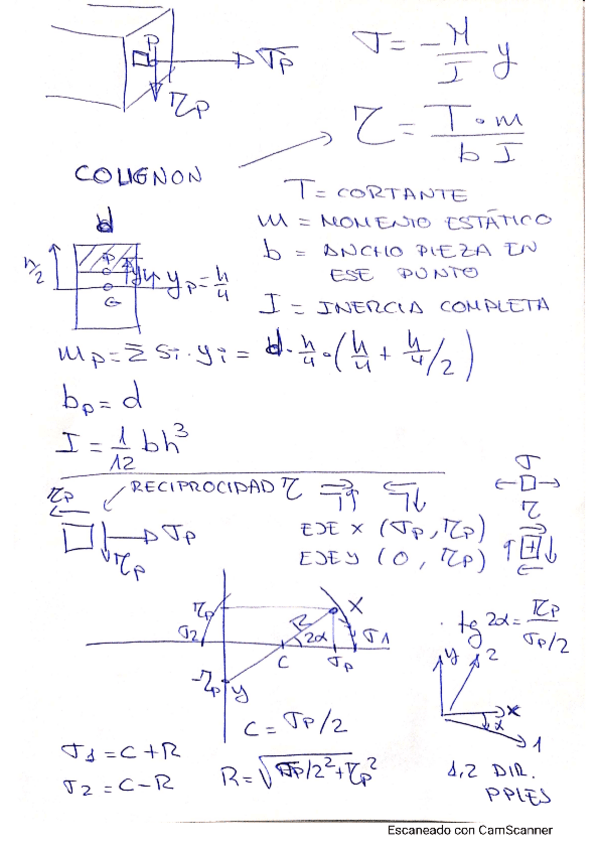 P
σp
τp
σ = - M/I y
τ = T·m / b I
COLIGNON
T = CORTANTE
m = MOMENTO ESTÁTICO
b = ANCHO PIEZA EN
ESE PUNTO
I = INERCIA COMPLETA
d
h/2
P
G
yp = h/4
mp = Σ Si · yi = d · h/4 · (h/4 + h/4/2)
bp = d
I = 1/12 bh³
RECIPROCIDAD τ
τp
σp
τp
EJE X (σp, τp)
EJE Y (0, τp)
σ
τ
+
τp
σ2
R
X
2α
σ1
C
σp
-τp
y
C = σp/2
tg 2α = τp / σp/2
y
2
x
α
1
σ1 = C + R
σ2 = C - R
R = √σp/2² + τp²
1,2 DIR.
PPLES
Escaneado con CamScanner